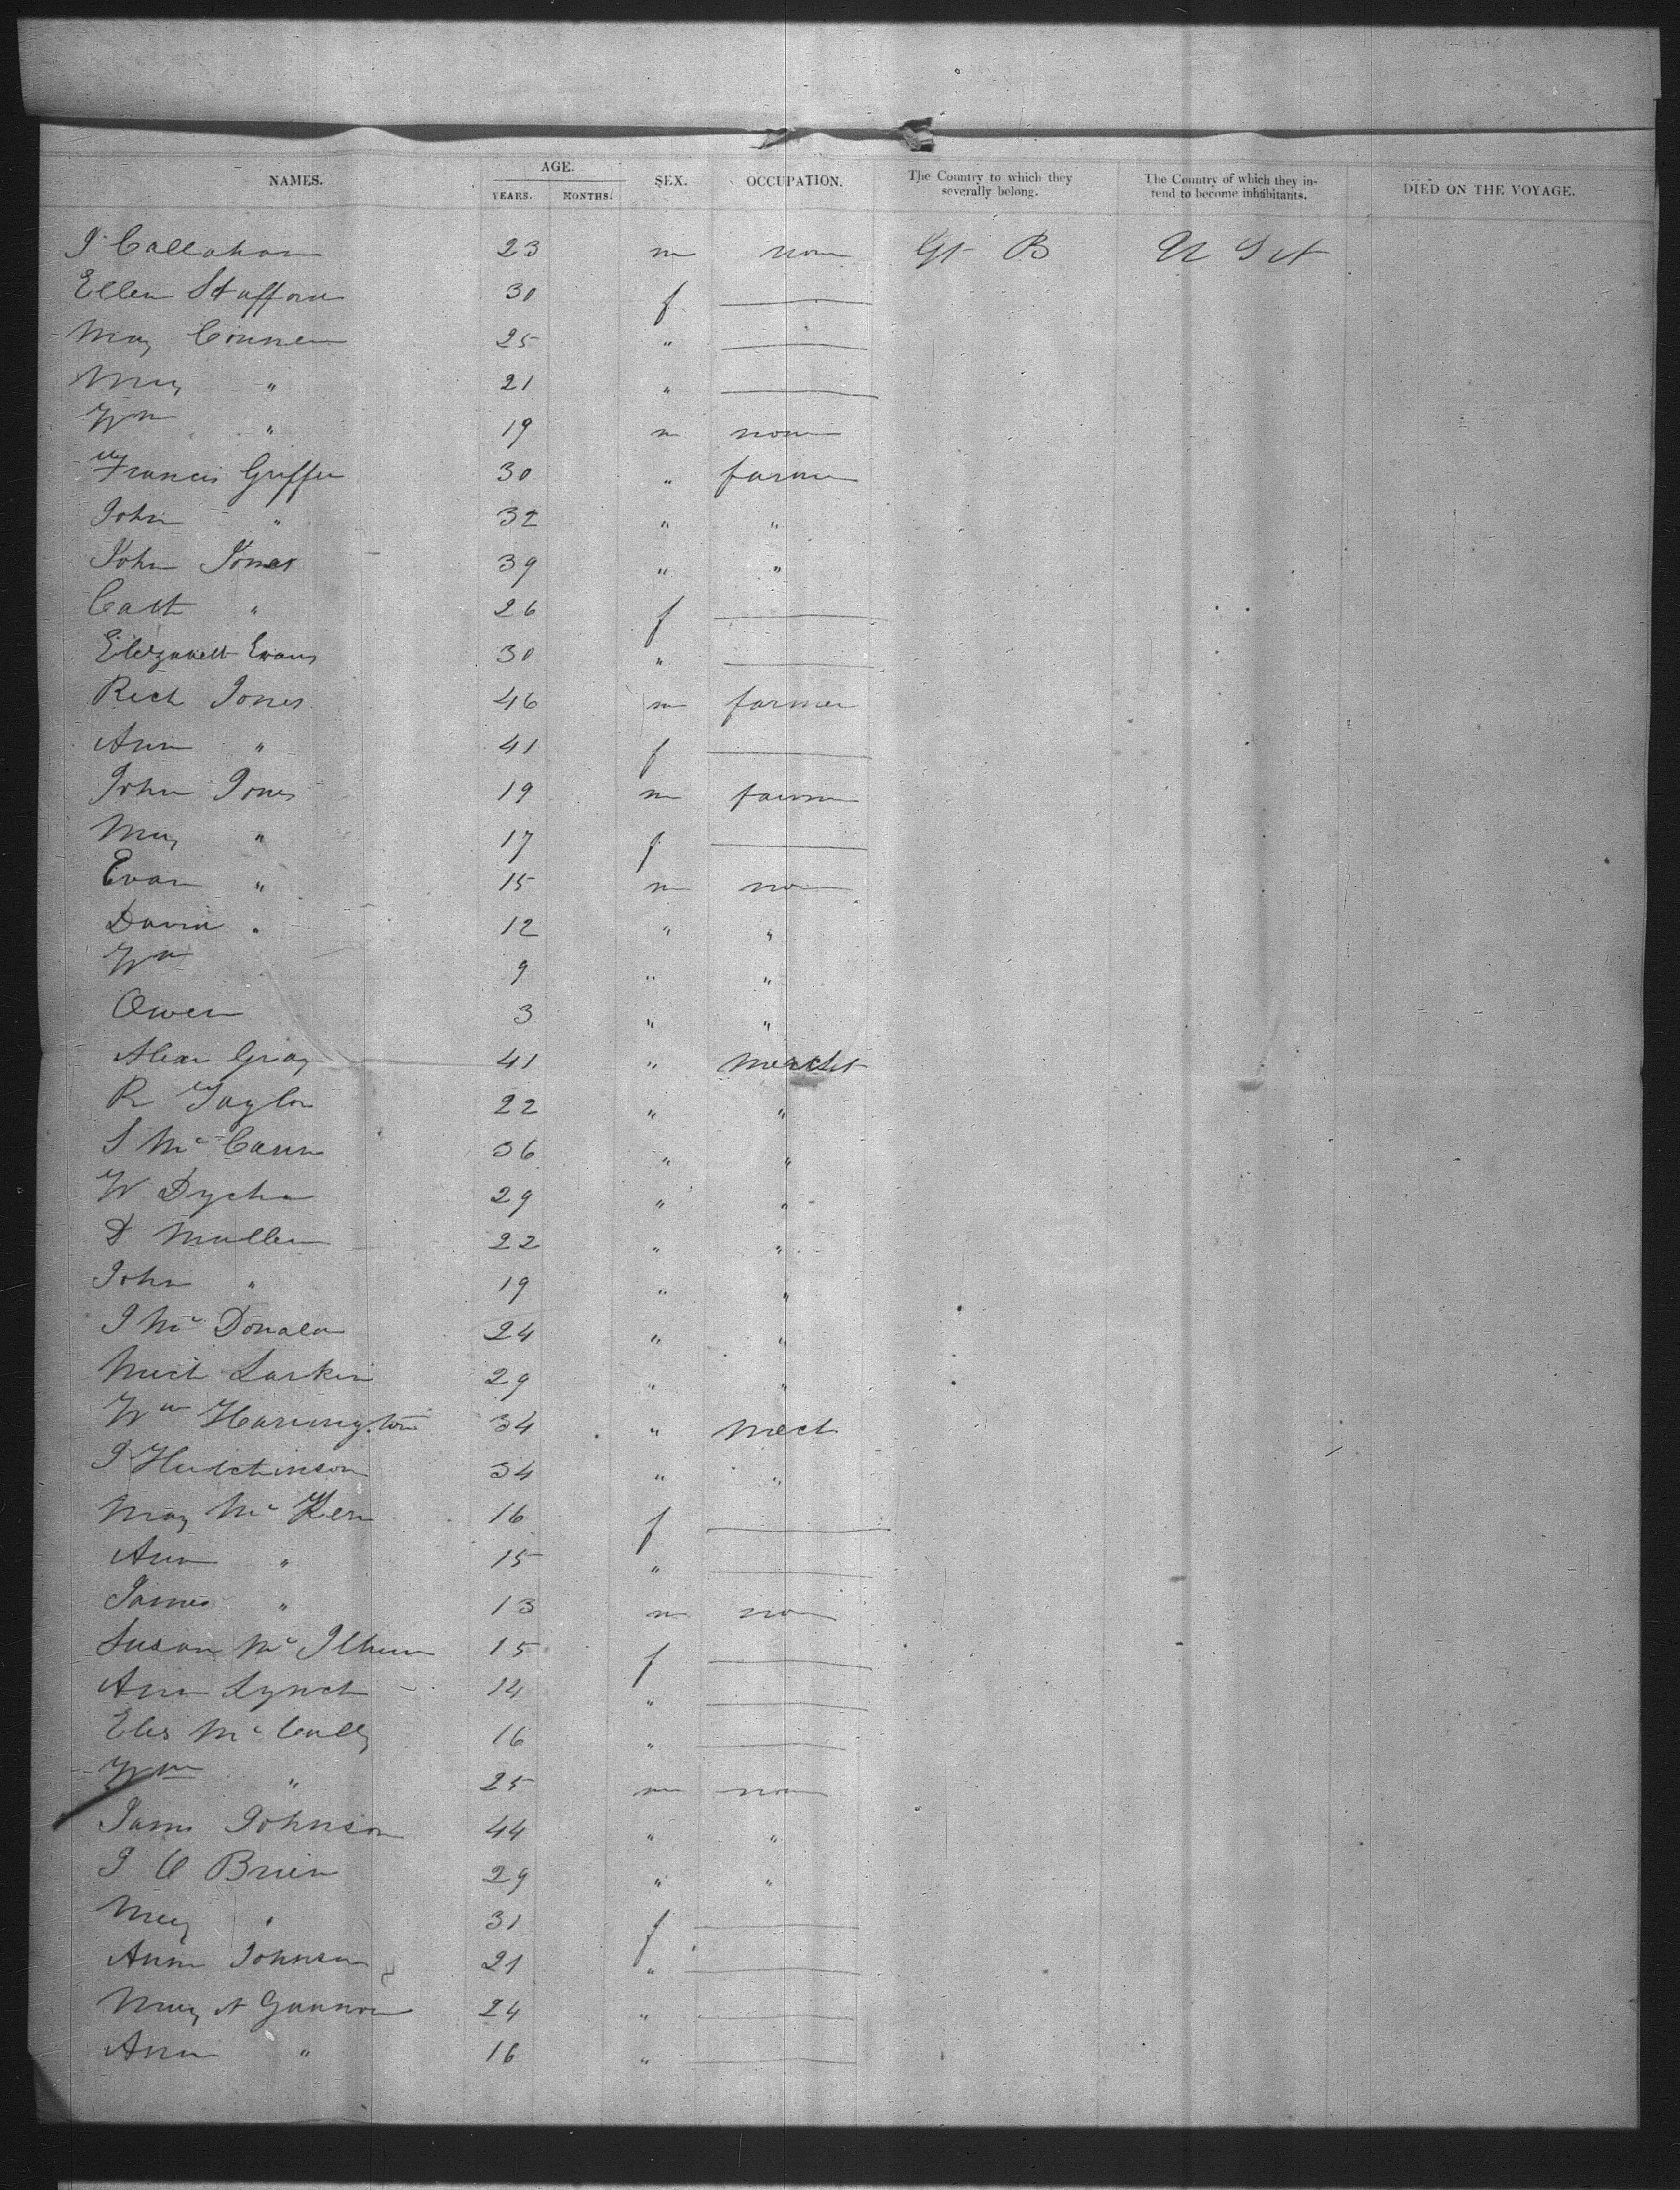 NAMES. AGE. YEARS. MONTHS. SEX. OCCUPATION. The Country to which they severally belong. The Country of which they intend to become inhabitants. DIED ON THE VOYAGE.
J Callahan 23 m non Gt B U S A
Ellen Stafford 30 f
May Conner 25 "
Mary " 21 "
Wm " 19 m non
Francis Griffen 30 " farmer
John " 32 " "
John Jones 39 " "
Cath " 26 f
Elizabeth Evans 30 "
Rich Jones 46 m farmer
Ann " 41 f
John Jones 19 m farmer
Mary " 17 f
Evan " 15 m non
David " 12 " "
Wm 9 " "
Owen 3 " "
Alex Gray 41 "
R Taylor 22 " "
S Mc Cann 36 " "
W 29 " "
D Mullen 22 " "
John " 19 " "
J Mc Donald 24 " "
Mich Larkin 29 " "
Wm Harrington 34 " Mech
J Hutchinson 34 " "
May Mc Kern 16 f
Ann " 15 "
James " 13 m non
Susan Mc 15 f
Ann Lynch 14 "
Elis Mc Cully 16 "
Wm " 25 m non
James Johnson 44 " "
J O Brien 29 " "
Mary " 31 f
Ann Johnson 21 "
Mary A Gannon 24 "
Ann " 16 "